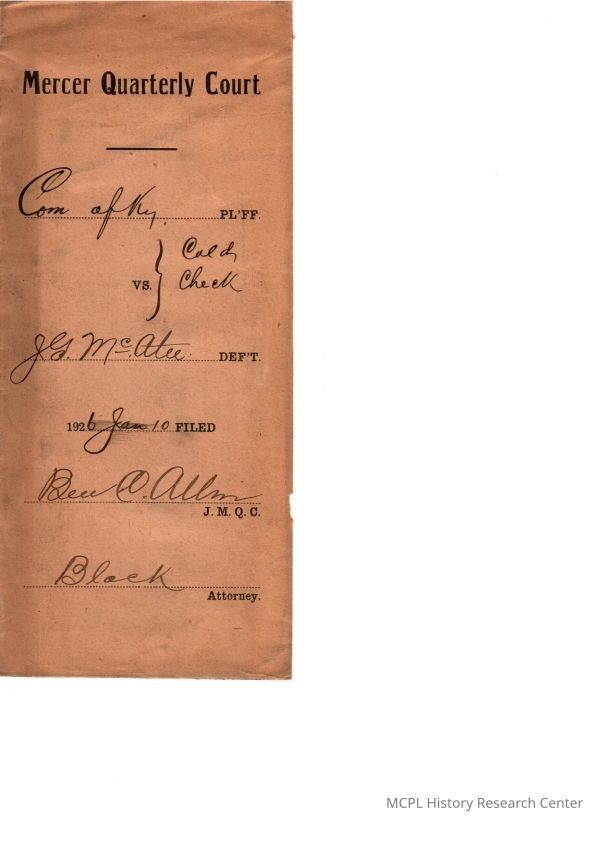 Mercer Quarterly Court
Com of Ky PL'FF.
Cold
VS. Check
J.G. McAtee DEF'T.
1926 Jan 10 FILED
Ben C. Allin
J. M. Q. C.
Black
Attorney.
MCPL History Research Center